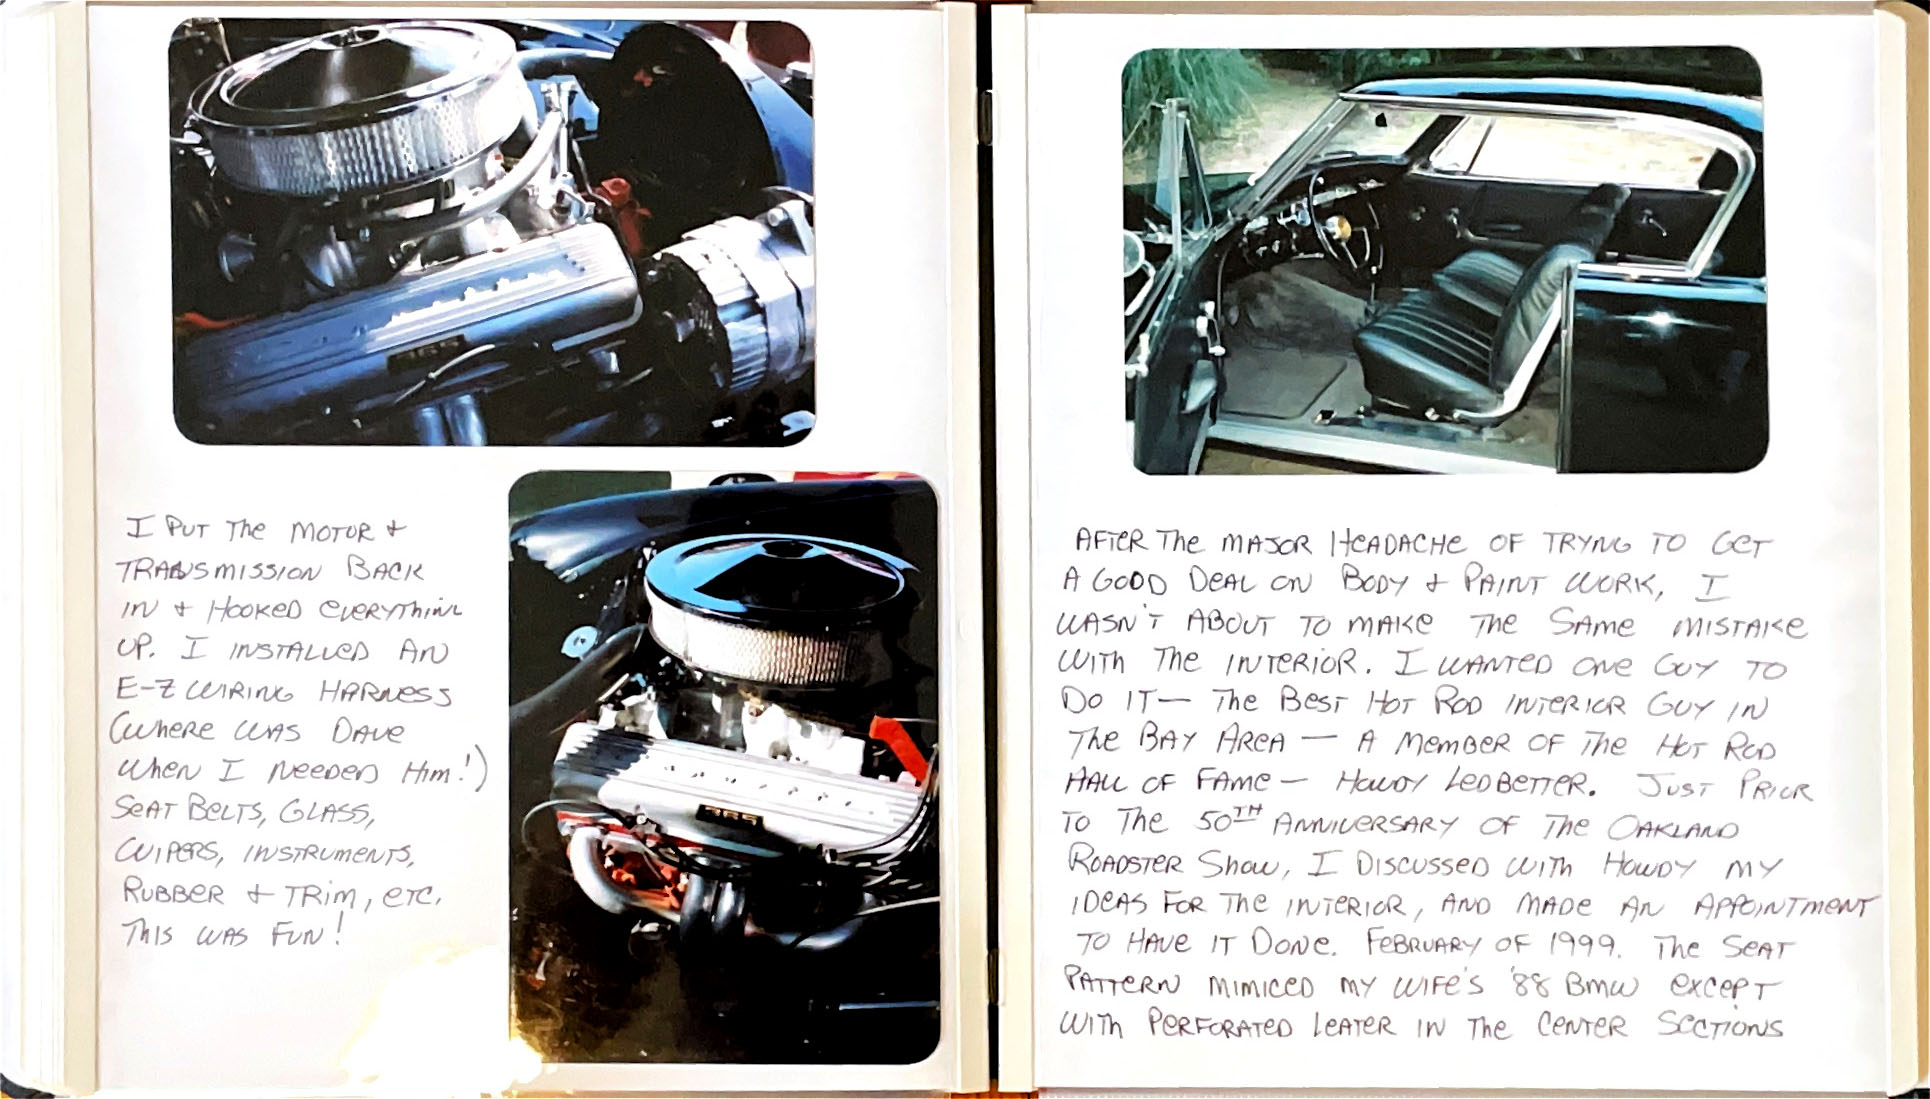 I PUT THE MOTOR &
TRANSMISSION BACK
IN & HOOKED EVERYTHING
UP. I INSTALLED AN
E-Z WIRING HARNESS
(WHERE WAS DAVE
WHEN I NEEDED HIM!)
SEAT BELTS, GLASS,
WIPERS, INSTRUMENTS,
RUBBER & TRIM, ETC.
THIS WAS FUN!
AFTER THE MAJOR HEADACHE OF TRYNG TO GET
A GOOD DEAL ON BODY & PAINT WORK, I
WASN'T ABOUT TO MAKE THE SAME MISTAKE
WITH THE INTERIOR. I WANTED ONE GUY TO
DO IT — THE BEST HOT ROD INTERIOR GUY IN
THE BAY AREA — A MEMBER OF THE HOT ROD
HALL OF FAME — HOWDY LEDBETTER. JUST PRIOR
TO THE 50TH ANNIVERSARY OF THE OAKLAND
ROADSTER SHOW, I DISCUSSED WITH HOWDY MY
IDEAS FOR THE INTERIOR, AND MADE AN APPOINTMENT
TO HAVE IT DONE. FEBRUARY OF 1999. THE SEAT
PATTERN MIMICED MY WIFE'S '88 BMW EXCEPT
WITH PERFORATED LEATER IN THE CENTER SECTIONS